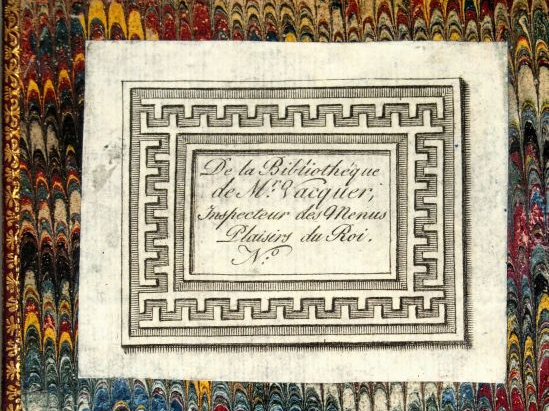 De la Bibliothéque
de M.r Vacquer,
Inspecteur des Menus
Plaisirs du Roi.
N.o